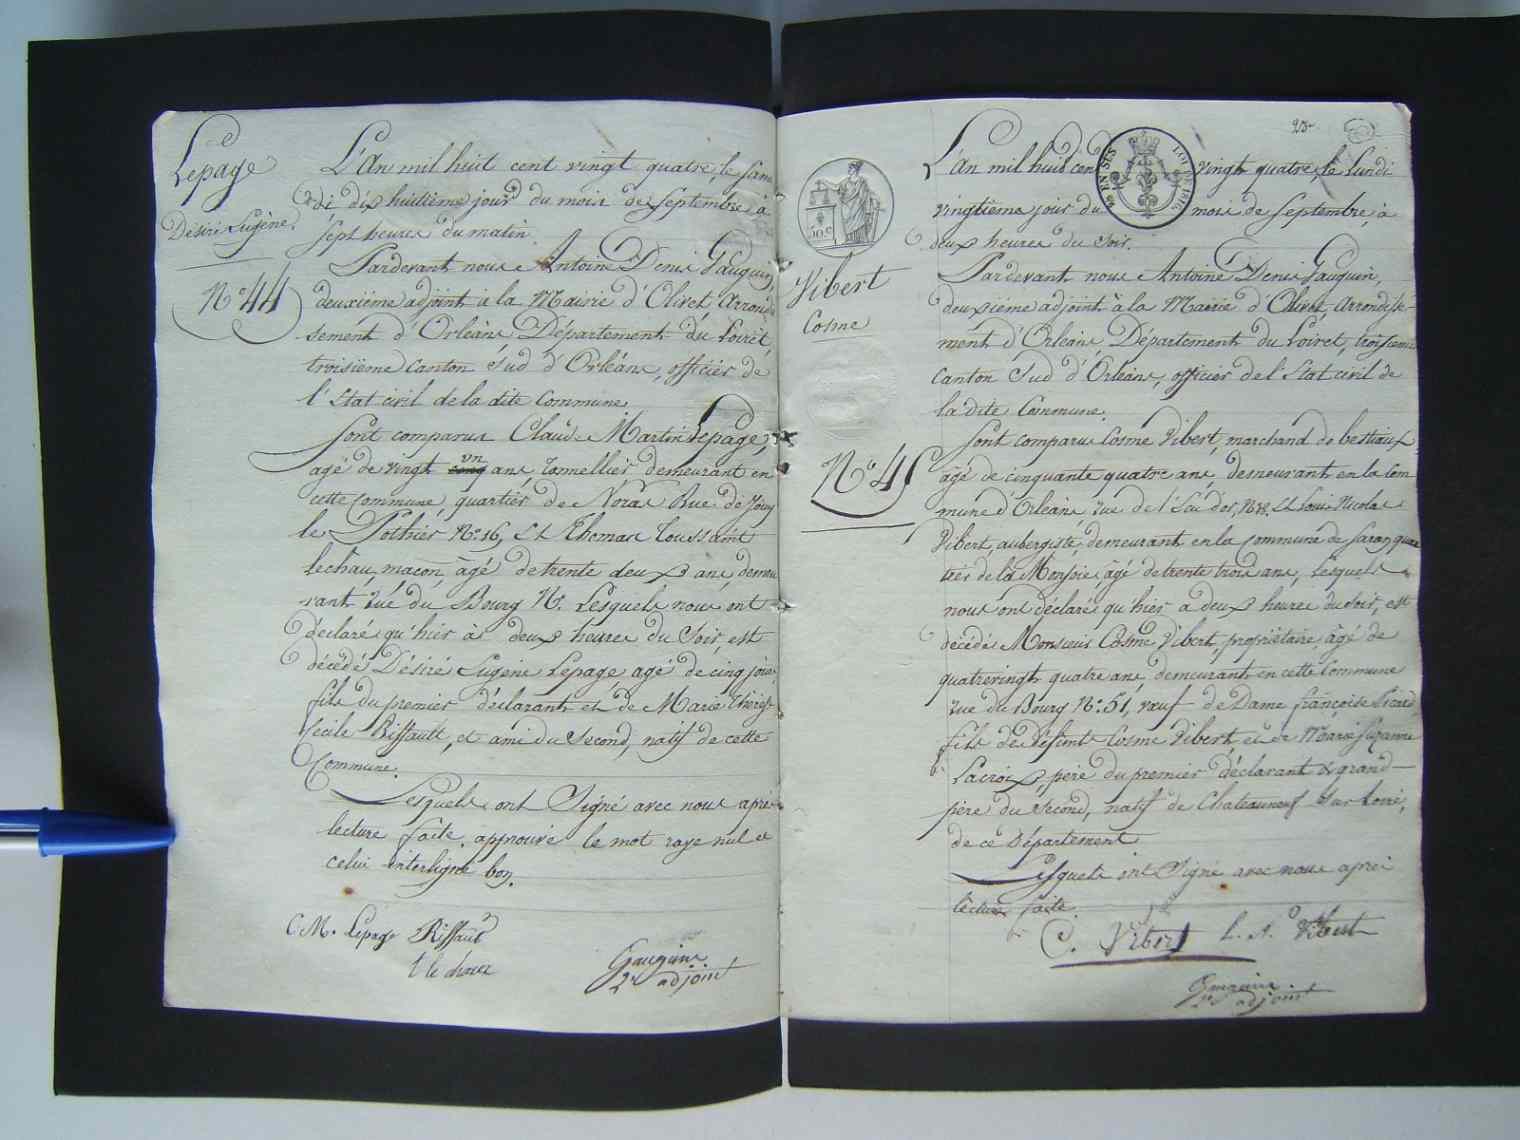 Lepage
Désiré Eugène.
N.º 44
L'An mil huit cent vingt quatre, le Same
di dix huitième jour du mois de Septembre à
sept heures du matin.
Pardevant nous Antoine Denis Gauguin,
deuxième adjoint a la Mairie d'Olivet Arrondis
sement d'Orléans Département du Loiret,
troisième Canton Sud d'Orléans, officier de
l'Etat civil de la dite Commune.
Sont comparus Claude Martin Lepage,
agé de vingt cinq un ans Tonnellier demeurant en
cette Commune, quartier de Noras Rue de Jouy
le Pothier N.º 16, Et Thomas Toussaint
Lechau, maçon, âgé de trente deux ans, demeu
rant rue du Bourg N.º Lesquels nous ont
déclaré qu'hier à deux heures du Soir, est
décédé Désiré Eugène Lepage agé de cinq jours,
fils du premier déclarant et de Marie Thérèse
Cécile Riffault, et ami du Second, natif de cette
Commune.
Lesquels ont Signé avec nous après
lecture faite. approuvé le mot rayé nul et
celui interligné bon.
C. M. Lepage Riffault
Gauguin
2e adjoint
23
Vibert
Cosme
N.º 45
L'An mil huit cent vingt quatre, le Lundi
vingtième jour du mois de Septembre, à
deux heures du Soir.
Pardevant nous Antoine Denis Gauguin,
deuxième adjoint à la Mairie d'Olivet, Arrondisse
ment d'Orléans Département du Loiret, troisième
Canton Sud d'Orléans, officier de l'Etat civil de
la dite Commune.
Sont comparus Cosme Vibert, marchand de bestiaux
âgé de cinquante quatre ans, demeurant en la Com
mune d'Orléans rue de l'Ecu d'or, N.º 8. Et Louis Nicolas
Vibert, aubergiste, demeurant en la Commune de Saran quar
tier de la Monjoie âgé de trente trois ans, Lesquels
nous ont déclaré qu'hier a deux heures du soir, est
décédé Monsieur Cosme Vibert, propriétaire, âgé de
quatrevingt quatre ans, demeurant en cette Commune
rue du Bourg N.º 51, veuf de Dame françoise Picard
fils de défunts Cosme Vibert, et de Marie Suzanne
Lacroix, père du premier déclarant & grand
père du Second, natif de Chateauneuf Sur Loire,
de ce Département
Lesquels ont Signé avec nous après
lecture faite.
C. Vibert L. N. Vibert
Gauguin
2e adjoint